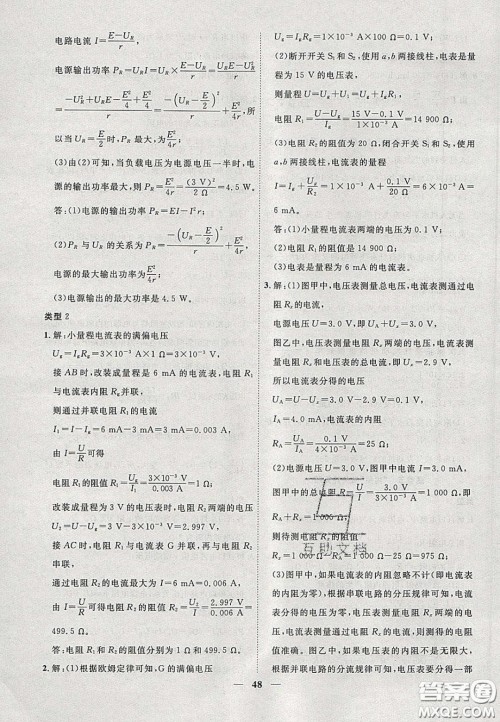 电路电流 I=E-U_R/r,
电源输出功率 P_R=U_RI=U_R×E-U_R/r=
-U_R²+U_RE-E²/4+E²/4/r=-(U_R-E/2)²+E²/4/r,所
以当 U_R=E/2时,P_R 最大,为E²/4r;
(3)由(2)可知,当负载电压为电源电压一半时,电
源输出功率最大,最大为E²/4r=(3 V)²/2 Ω=4.5 W。
答:(1)电源的输出功率 P=EI-I²r;
(2)P_R 与 U_R 的关系为 P_R=-(U_R-E/2)²+E²/4/r,
电源的最大输出功率为E²/4r;
(3)电源输出的最大功率是 4.5 W。
类型 2
1.解:小量程电流表的满偏电压
U_g=R_gI_g=3×10⁻³ A×1 Ω=3×10⁻³ V;
接 AB 时,改装成量程是 6 mA 的电流表,电阻 R_1
与电流表内阻 R_g并联,
则通过并联电阻 R_1 的电流
I_1=I-I_g=6 mA-3 mA=3 mA=0.003 A,
由 I=U/R可得
电阻 R_1 的阻值 R_1=U_g/I_1=3×10⁻³ V/0.003 A=1 Ω;
改装成量程为 3 V 的电压表时,电阻 R_2 的电压
U_2=U-U_g=3 V-3×10⁻³ V=2.997 V,
接 AC 时,电阻 R_1 与电流表 G 并联,再与电阻 R_2
串联,
通过电阻 R_2 的电流最大为 I=6 mA=0.006 A,
由 I=U/R可得,电阻 R_2 的阻值 R_2=U_2/I=2.997 V/0.006 A=
499.5 Ω。
答:电阻 R_1 和 R_2 的阻值分别为 1 Ω、499.5 Ω。
2.解:(1)根据欧姆定律可知,G 的满偏电压
U_g=I_gR_g=1×10⁻³ A×100 Ω=0.1 V;
(2)断开开关 S_1 和 S_2,使用 a,b 两接线柱,电表是量
程为 15 V 的电压表,
I_1=I_g=1×10⁻³ A,
电阻 R_1=U-U_g/I_1=15 V-0.1 V/1×10⁻³ A=14 900 Ω;
(3)电阻 R_2 的阻值 20 Ω,闭合开关 S_1 和 S_2,使用
a,b 两接线柱,电流表的量程
I=I_g+U_g/R_2=1×10⁻³ A+0.1 V/20 Ω=6×10⁻³ A
=6 mA。
答:(1)小量程电流表两端的电压为0.1 V;
(2)电阻 R_1 的阻值是 14 900 Ω;
(3)电表是量程为 6 mA 的电流表。
3.解:(1)图甲中,电压表测量总电压,电流表测通过电
阻 R_x的电流,
电源电压U=3.0 V,由题意可知,U_A+U_x=3.0 V;
图乙中,电压表测量电阻 R_x的电压U_x=2.9 V,电
流表测电阻R_x和电压表的总电流,即I_A=4 mA,
所以电流表分得的电压
U_A=U-U_x=3.0 V-2.9 V=0.1 V,
由 I=U/R可得,电流表的内阻
R_A=U_A/I_A=0.1 V/4×10⁻³ A=25 Ω;
(2)电源电压 U=3.0 V,图甲中电流 I=3.0 mA,
图甲中的总电阻 R=U/I=3.0 V/3.0×10⁻³ A=1 000 Ω,即
R_A+R_x=1 000 Ω,
则待测电阻 R_x的阻值
R_x=1 000 Ω-R_A=1 000 Ω-25 Ω=975 Ω;
(3)图甲中,如果电流表的内阻忽略不计(即电流表
的内阻为零),根据串联电路的分压规律可知,电流
表分得的电压为零,电压表测电阻 R_x两端的电
压,电流表测通过电阻R_x的电流;图乙中,如果电
压表的内阻不是无限大(即电压表的内阻有限大),
根据并联电路的分流规律可知,电压表要分得一部
互助文档
48
答案圈
MXQE.COM